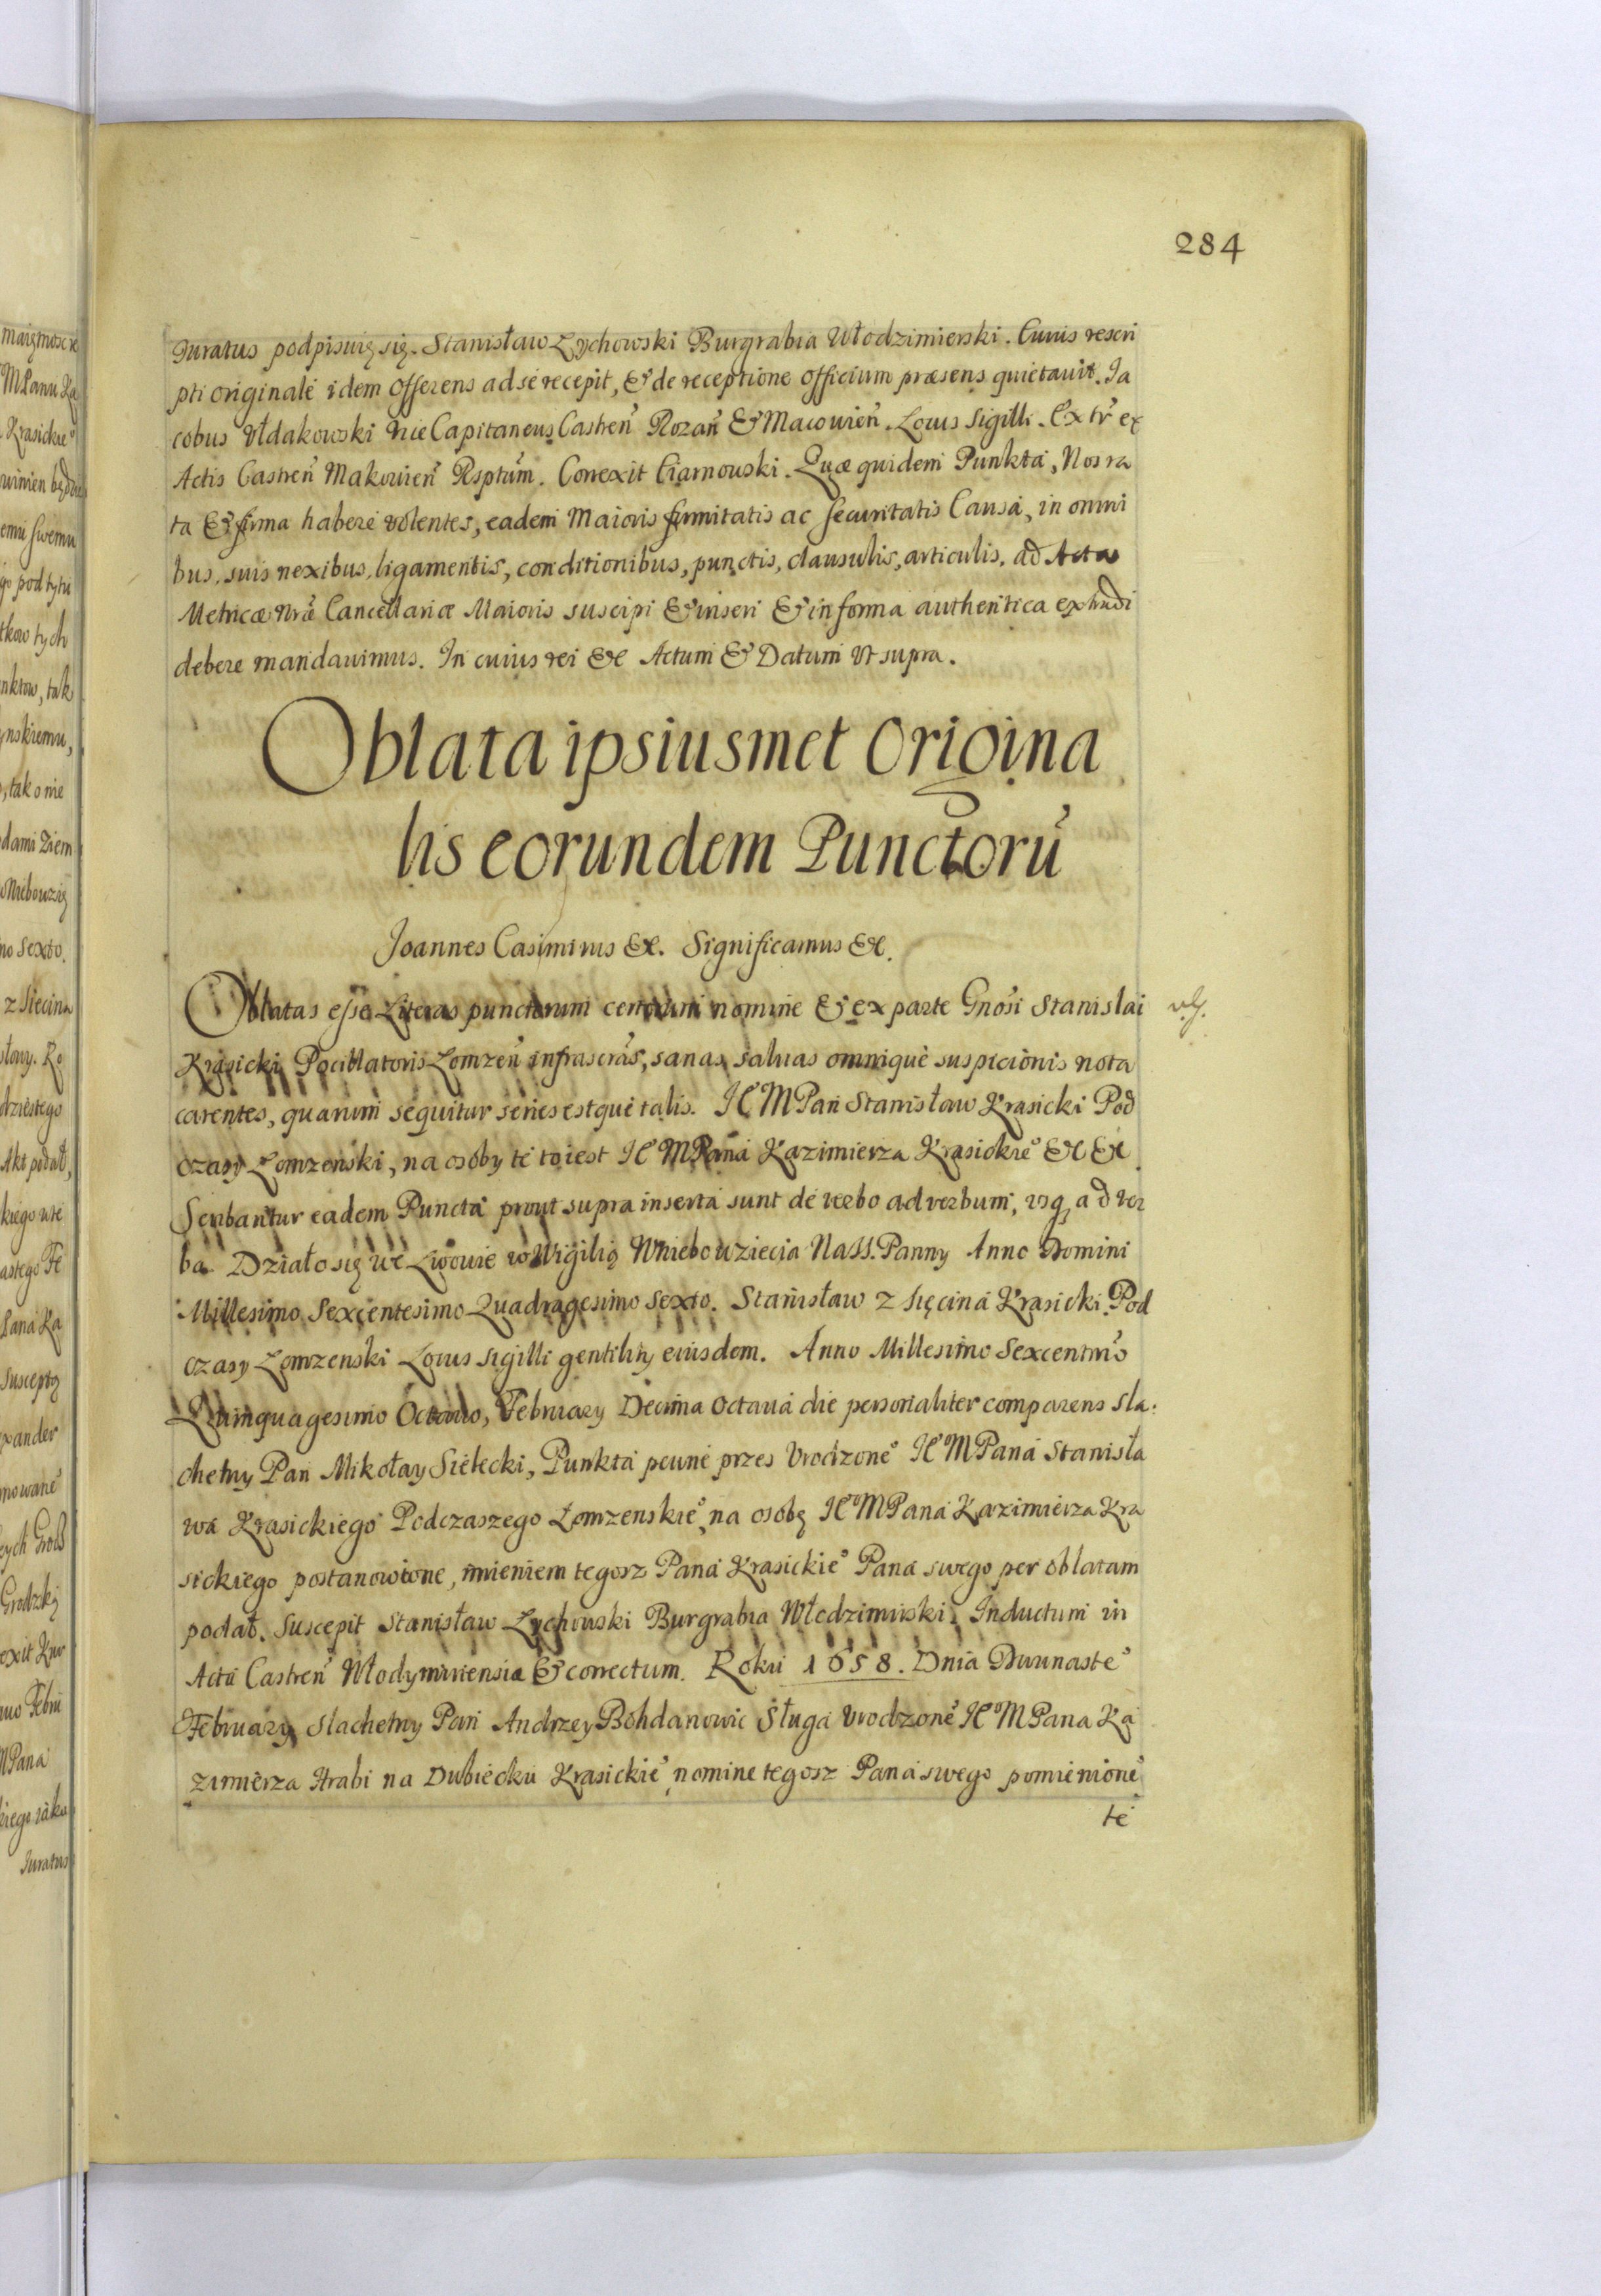 284
Juratus podpisuię się. Stanisław Łychowski Burgrabia Włodzimierski. Cuius rescri
pti originale idem offerens ad se recepit, & de receptione officium præsens quietauit. Ja
cobus Vłdakowski Vice Capitaneus Castreń Rozań & Macouień. Locus Sigilli. Extr ex
Actis Castreń Makouień Rsptum. Correxit Czarnouski. Quæ quidem Punkta, Nos ra
ta & firma habere volentes, eadem Maioris firmitatis ac securitatis Causa, in omni
bus, suis nexibus, ligamentis, conditionibus, punctis, clausulis, articulis, ad Acta
Metricæ Nræ Cancellariæ Maioris suscipi & inseri & in forma authentica extradi
debere mandauimus. In cuius rei &c Actum & Datum Vt supra.
Oblata ipsiusmet Origina
lis eorundem Punctorũ
Joannes Casimirus &c. Significamus &c.
Oblatas esse Literas punctorum certorum nomine & ex parte Gnosi Stanislai
Krasicki Pocillatoris Łomzeń infrascras, sanas saluas omnique suspicionis nota
carentes, quarum sequitur series estque talis. JE'M Pan Stanisław Krasicki Pod
czaszy Łomzenski, na osoby te to iest JE'M Pana Kazimierza Krasickie° &c &c
Scribantur eadem Puncta prout supra inserta sunt de verbo ad verbum, vsq ad ver
ba Działo się we Lwowie w Wigilią Wniebowziecia Nass. Panny Anno Domini
Millesimo Sexcentesimo Quadragesimo Sexto. Stanisław z Sięcina Krasicki Pod
czaszy Łomzenski Locus sigilli gentilitij eiusdem. Anno Millesimo Sexcentmo
Quinquagesimo Octauo, Februarij Decima Octaua die personaliter comparens sla
chetny Pan Mikołay Sielecki, Punkta peune przes Vrodzone° JE°M Pana Stanisła
wa Krasickiego Podczaszego Łomzenskie°, na osobę JE°M Pana Kazimierza Kra
sickiego postanowione, imieniem tegosz Pana Krasickie° Pana swego per oblatam
podał. Suscepit Stanisław Łychouski Burgrabia Włodzimirski. Inductum in
Acta Castreń Włodymiriensia & correctum. Roku 1658. Dnia Dwunaste°
Februarij Slachetny Pan Andrzey Bohdanowic Sługa Vrodzone° JE°M Pana Ka
zimierza Hrabi na Dubiecku Krasickie° nomine tegosz Pana swego pomienione
te